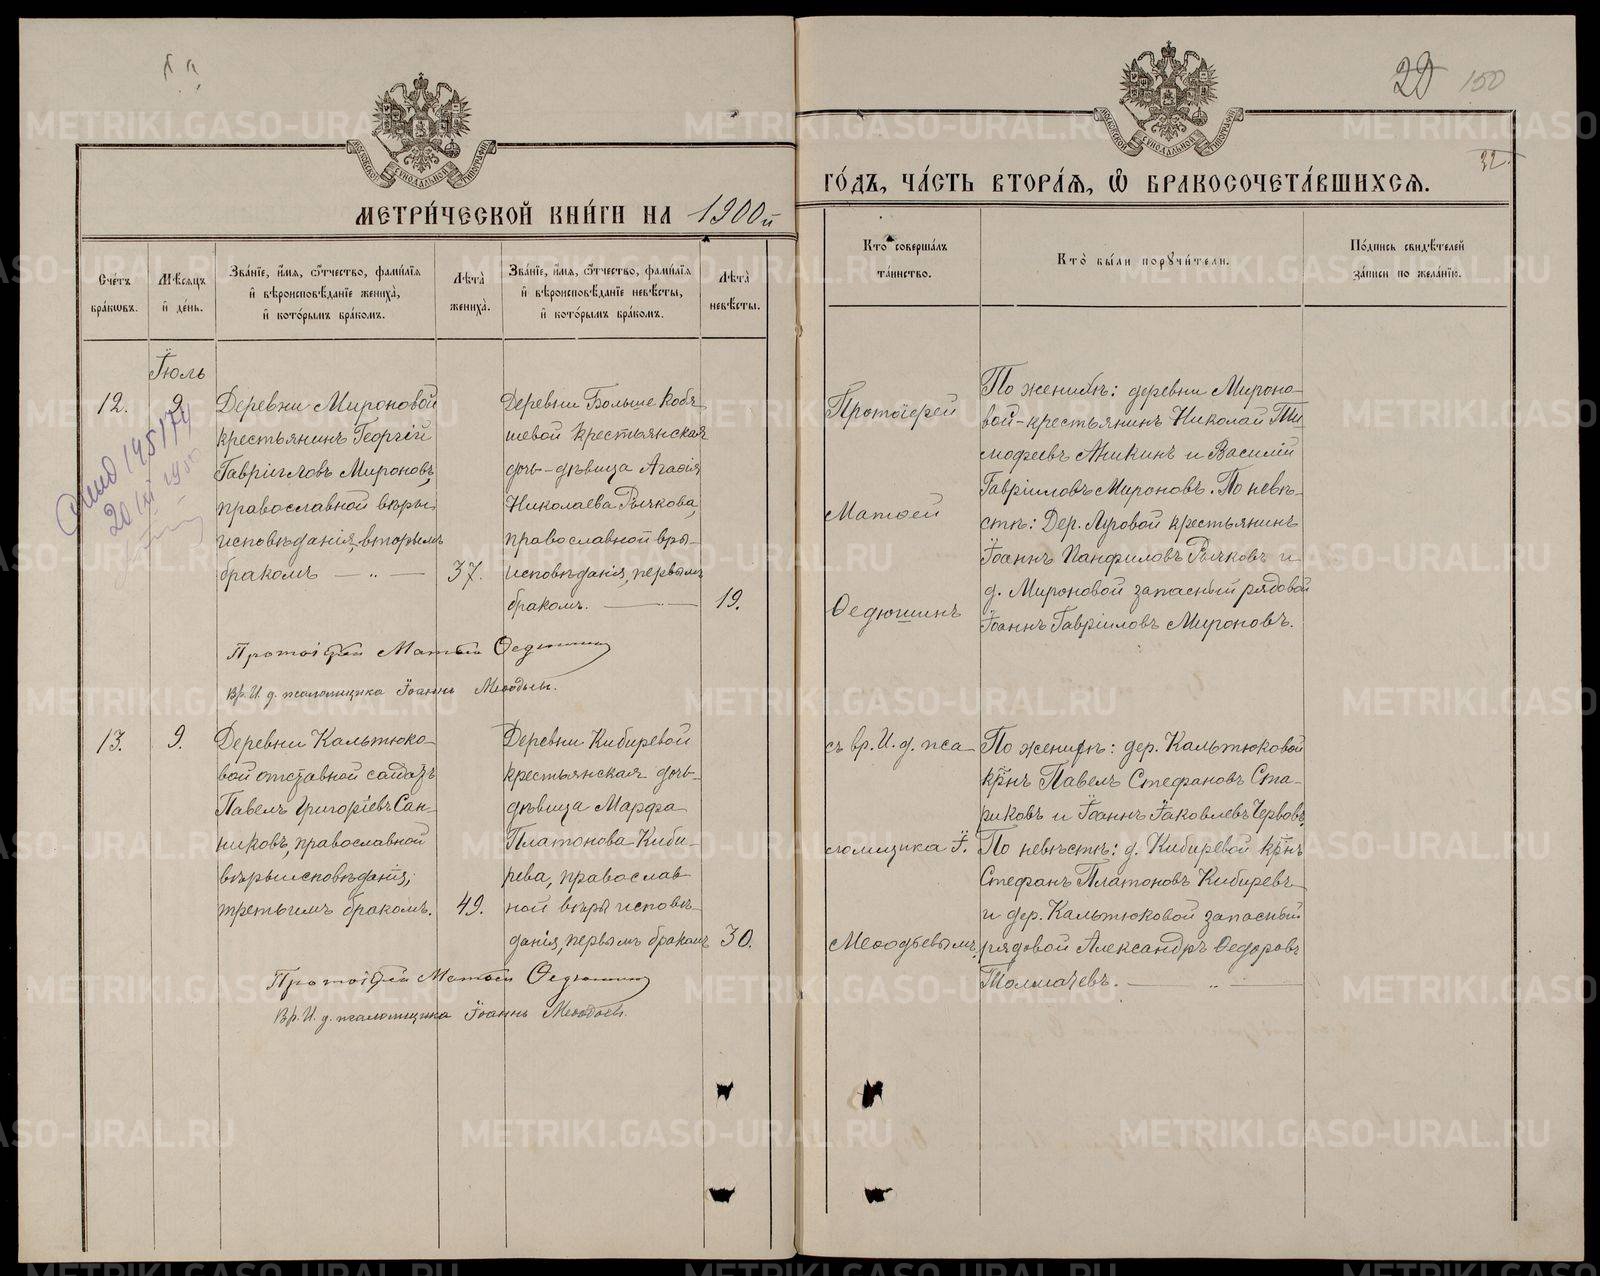 METRIKI.GASO-URAL.RU
29 150
32.
МОСКОВСКОЙ СѴНОДАЛЬНОЙ ТИПОГРАФІИ
МЕТРИ́ЧЕСКОЙ КНИ́ГИ НА 1900й
ГО́ДЪ, ЧА́СТЬ ВТОРА́Я, Ѿ БРАКОСОЧЕТА́ВШИХСЯ.
Сче́тъ бра́ковъ.
Мѣ́сяцъ и де́нь.
Зва́нїе, и́мя, ѻ҆́тчество, фами́лїя и вѣроисповѣ́данїе жениха̀, и кото́рымъ бра́комъ.
Лѣ́та жениха̀.
Зва́нїе, и́мя, ѻ҆́тчество, фами́лїя и вѣроисповѣ́данїе невѣ́сты, и кото́рымъ бра́комъ.
Лѣ́та невѣ́сты.
Кто̀ соверша́лъ та́инство.
Кто̀ бы́ли поручи́тели.
По́дпись свидѣ́телей за́писи по жела́нїю.
Іюль
12.
9
145174
20
Деревни Мироновой
крестьянинъ Георгій
Гавріиловъ Мироновъ,
православной вѣры
исповѣданія, вторымъ
бракомъ — „ —
37.
Деревни Больше Кобя-
шевой крестьянская
дочь-дѣвица Агаѳія
Николаева Рычкова,
православной вѣры-
исповѣданія, первымъ
бракомъ. —
19.
Протоіерей
Матѳей
Ѳедюшинъ
По женихѣ: деревни Мироно-
вой-крестьянинъ Николай Ти
моѳеевъ Аникинъ и Василій
Гавріиловъ Мироновъ. По невѣ-
стѣ: Дер. Луговой крестьянинъ
Іоаннъ Панфиловъ Рычковъ и
д. Мироновой запасный рядовой
Іоаннъ Гавріиловъ Мироновъ.
Протоіерей Матѳей Ѳедюшинъ
Вр. И. д. псаломщика Іоаннъ Меѳодьевъ.
13.
9.
Деревни Кальтюко-
вой отставной солдатъ
Павелъ Григоріевъ Сан-
никовъ, православной
вѣры исповѣданія,
третьимъ бракомъ.
49.
Деревни Кибиревой
крестьянская дочь-
дѣвица Марфа
Платонова Киби-
рева, православ
ной вѣры исповѣ-
данія, первымъ бракомъ
30.
съ вр. И. д. пса
ломщика І.
Меѳодьевымъ.
По женихѣ: дер. Кальтюковой
крнъ Павелъ Стефановъ Ста-
риковъ и Іоаннъ Іаковлевъ Червовъ,
По невѣстѣ: д. Кибиревой крнъ
Стефанъ Платоновъ Кибиревъ
и дер. Кальтюковой запасный
рядовой Александръ Ѳедоровъ
Толмачевъ. — „ —
Протоіерей Матѳей Ѳедюшинъ
Вр. И. д. псаломщика Іоаннъ Меѳодьевъ.